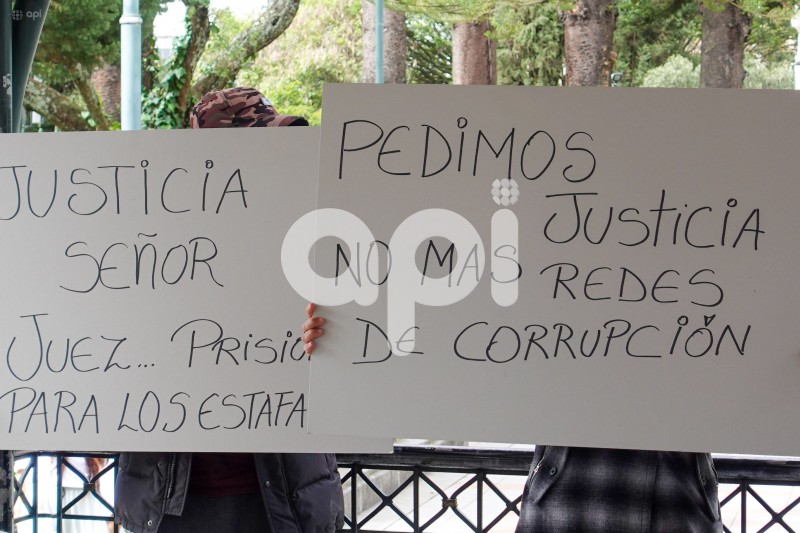 api
JUSTICIA
SEÑOR
JUEZ... PRISIÓ
PARA LOS ESTAFA
PEDIMOS
JUSTICIA
NO MAS REDES
DE CORRUPCIÓN
api